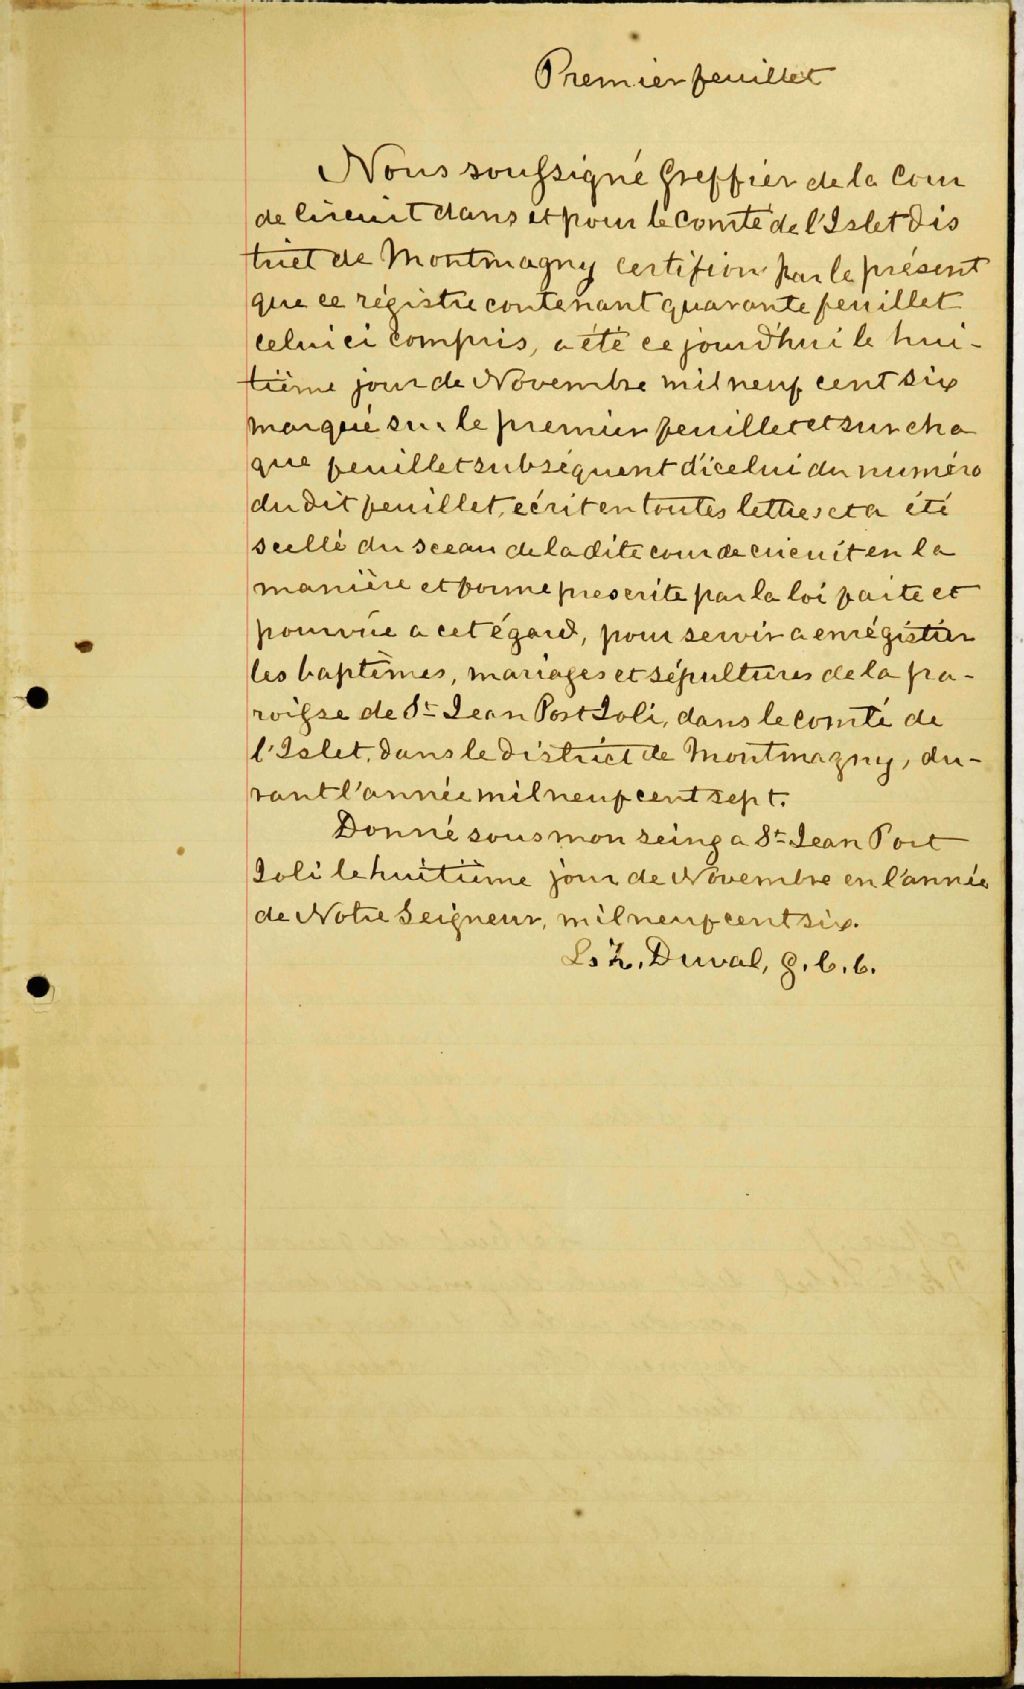 Premier feuillet
Nous soussigné Greffier de la Cour
de Circuit dans et pour le Comté de l'Islet Dis
trict de Montmagny certifion par le présent
que ce régistre contenant quarante feuillet
celui ci compris, a été ce jourd'hui le hui-
tième jour de Novembre mil neuf cent six
marqué sur le premier feuillet et sur cha
que feuillet subséquent d'icelui du numéro
du dit feuillet, écrit en toutes lettres et a été
scellé du sceau de la dite cour de circuit en la
manière et forme prescrite par la loi faite et
pourvue a cet égard, pour servir a enrégistrer
les baptêmes, mariages et sépultures de la pa-
roisse de St Jean Port Joli, dans le comté de
l'Islet, dans le District de Montmagny, du-
rant l'année mil neuf cent sept.
Donné sous mon seing a St Jean Port
Joli le huitième jour de Novembre en l'année
de Notre Seigneur, mil neuf cent six.
Ls Z. Duval, g. c. c.